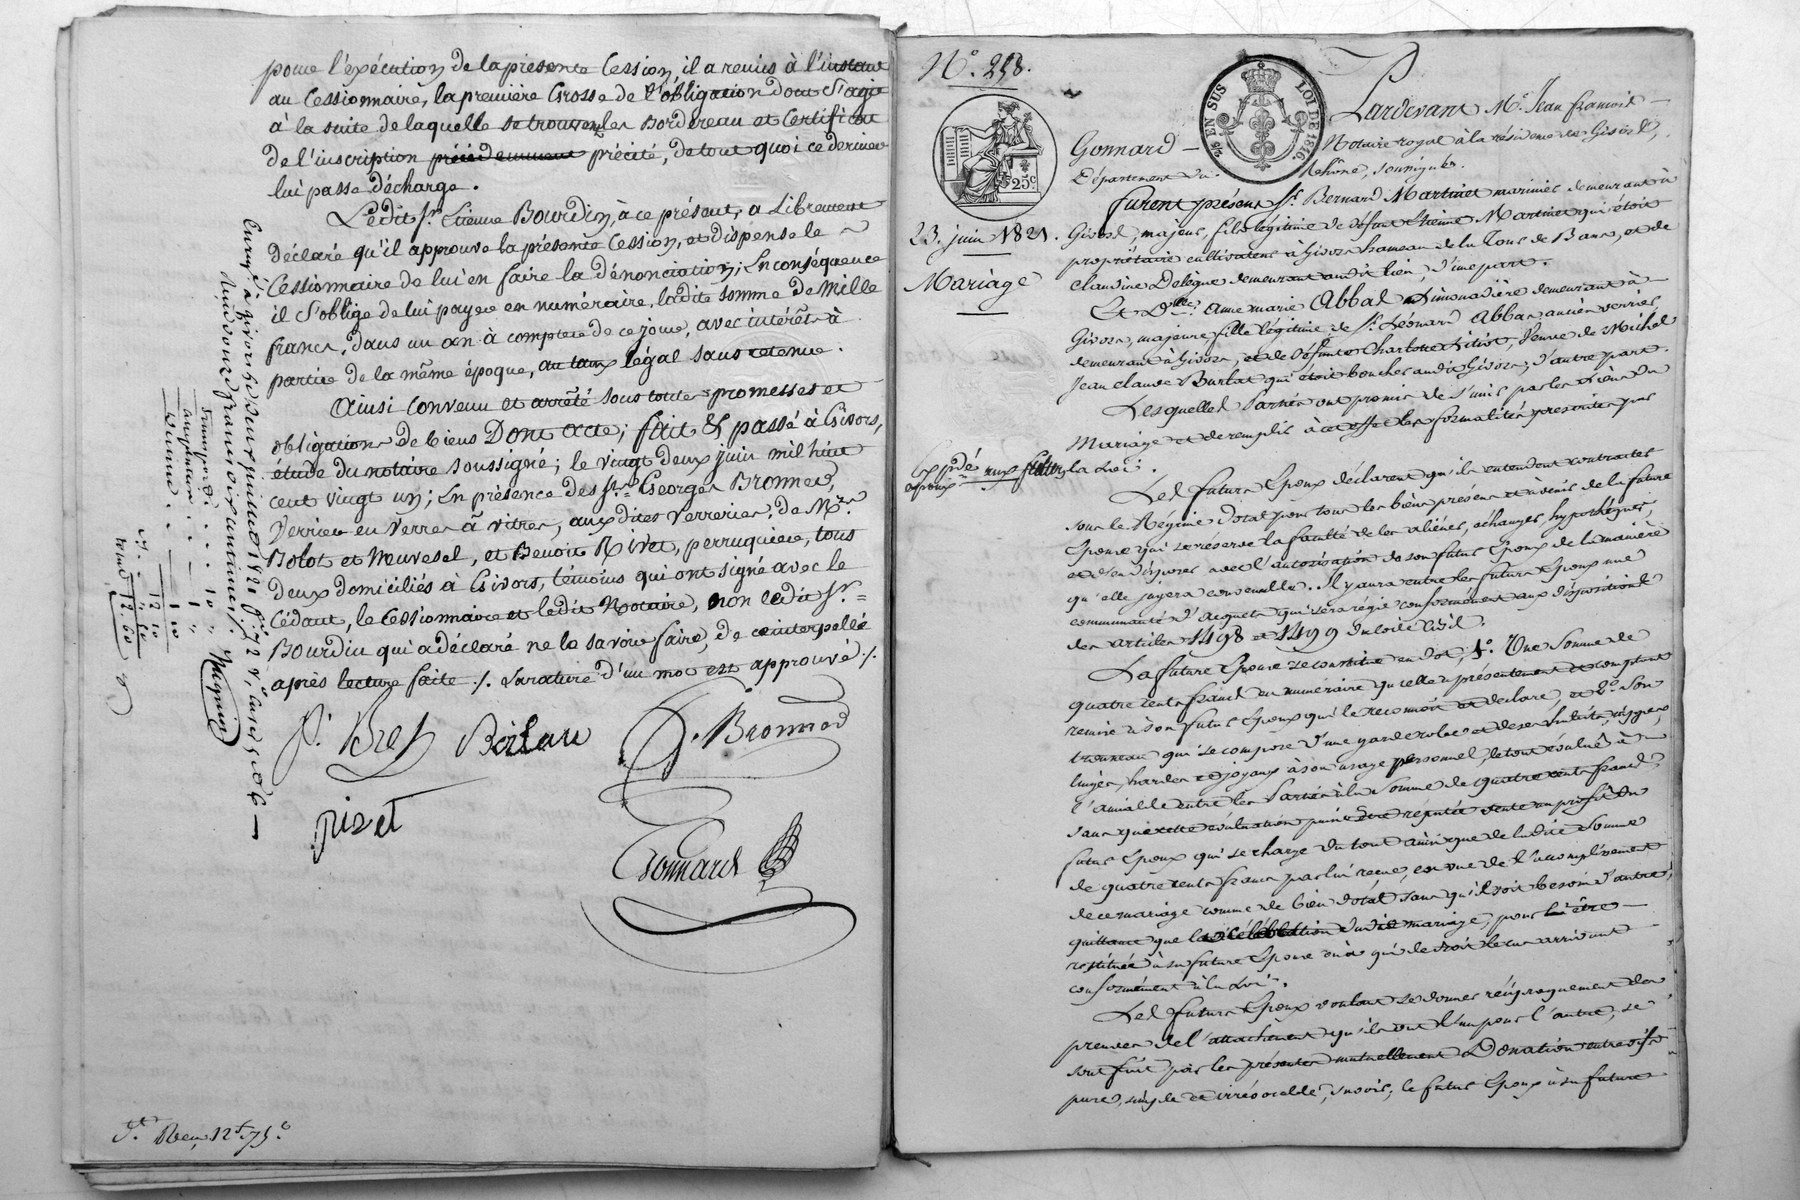 pour l'exécution de la présente Cession, il a remis à l'instant
au Cessionnaire, la première Grosse de l'obligation dont s'agit
à la suite de laquelle se trouvent les Bordereau et Certificat
de l'inscription précédemment précité, de tout quoi ce dernier
lui passe décharge.
Ledit Sr. Etienne Bourdin, à ce présent, a Librement
déclaré qu'il approuve la présente Cession, et dispense le
Cessionnaire de lui en faire la dénonciation; En conséquence
il s'oblige de lui payer en numéraire, ladite somme de Mille
francs, dans un an à compter de ce jour, avec intérêts à
partir de la même époque, au taux légal sans retenue.
Ainsi convenu et arrêté sous toutes promesses et
obligations de biens Dont acte; fait & passé à Givors,
étude du notaire soussigné; le vingt deux juin mil huit
cent vingt un; En présence des Srs. Georges Bronner,
Verrier en verres à vitres, aux dites verreries, de MMrs.
Bolot et Neuvesel, et Benoit Rivet, perruquier, tous
deux domiciliés à Givors, témoins qui ont signé avec le
Cédant, le Cessionnaire et ledit Notaire, non ledit Sr. =
Bourdin qui a déclaré ne la savoir faire, de ce interpellé
après lecture faite ./. La rature d'un mot est approuvé ./.
Enreg. à givors le deux juillet 1821 fo. 72 Vo. Case
Reçu douze francs dix centimes.
10 "
1 "
1 10
12 10
12 60
P. Bret Boileau G. Bronnod
rivet
Gonnard
Reçu 12f. 75c.
No. 258.
EN SUS LOI DE 1816.
25c
23. juin 1821.
Mariage
Expédié aux futurs
époux
Pardevant Me. Jean françois
Gonnard Notaire royal à la résidence de Givors,
Département du Rhône, soussigné.
furent présens Sr. Bernard Martinet marinier demeurant à
Givors, majeur, fils légitime de défunt Etienne Martinet qui étoit
propriétaire cultivateur à Givors hameau de la Tour de Bans, et de
Claudine Delegue demeurant audit lieu, d'une part.
Et Dlle. Anne marie Abbal Limonadière demeurant à
Givors, majeure fille légitime de Sr. Léonard Abbal ancien verrier
demeurant à Givors, et de défunte Charlotte, Veuve de Michel
Jean Claude Burlat qui étoit boucher audit Givors; d'autre part.
Lesquelles Parties ont promis de s'unir par les Liens du
Mariage et de remplir à cet effet les formalités prescrites par
la Loi.
Les futurs Epoux déclarent qu'ils entendent contracter
sous le Régime Dotal pour tous les biens présens et à venir de la future
Epouse qui se réserve la faculté de les aliéner, échanger, hypothéquer,
et d'en disposer avec l'autorisation de son futur Epoux de la manière
qu'elle jugera convenable. Il y aura entre les futurs Epoux une
communauté d'acquets qui sera régie conformément aux dispositions
des articles 1498 et 1499 du Code Civil.
La future Epouse se constitue en Dot, 1o. Une Somme de
quatre cents francs en numéraire qu'elle a présentement et comptant
remise à son futur Epoux qui le reconnoit et déclare, et 2o. Son
trousseau qui se compose d'une garderobe et de ses habits, nippes,
linges, hardes et joyaux à son usage personnel, le tout évalué à
l'amiable entre les Parties à la Somme de quatre cents francs
sans que cette évaluation puisse être réputée vente au profit du
futur Epoux qui se charge du tout ainsi que de ladite Somme
de quatre cents francs par lui reçue, en vue de l'accomplissement
de ce mariage comme de bien dotal sans qu'il soit besoin d'autre
quittance que la célébration dudit mariage, pour lui être
restituée à sa future Epouse ou à qui de droit le cas arrivant
conformément à la Loi.
Les futurs Epoux voulant se donner réciproquement des
preuves de l'attachement qu'ils ont l'un pour l'autre, se
sont fait par les présentes mutuellement Donation entre vifs
pure, simple et irrévocable, savoir, le futur Epoux à sa future